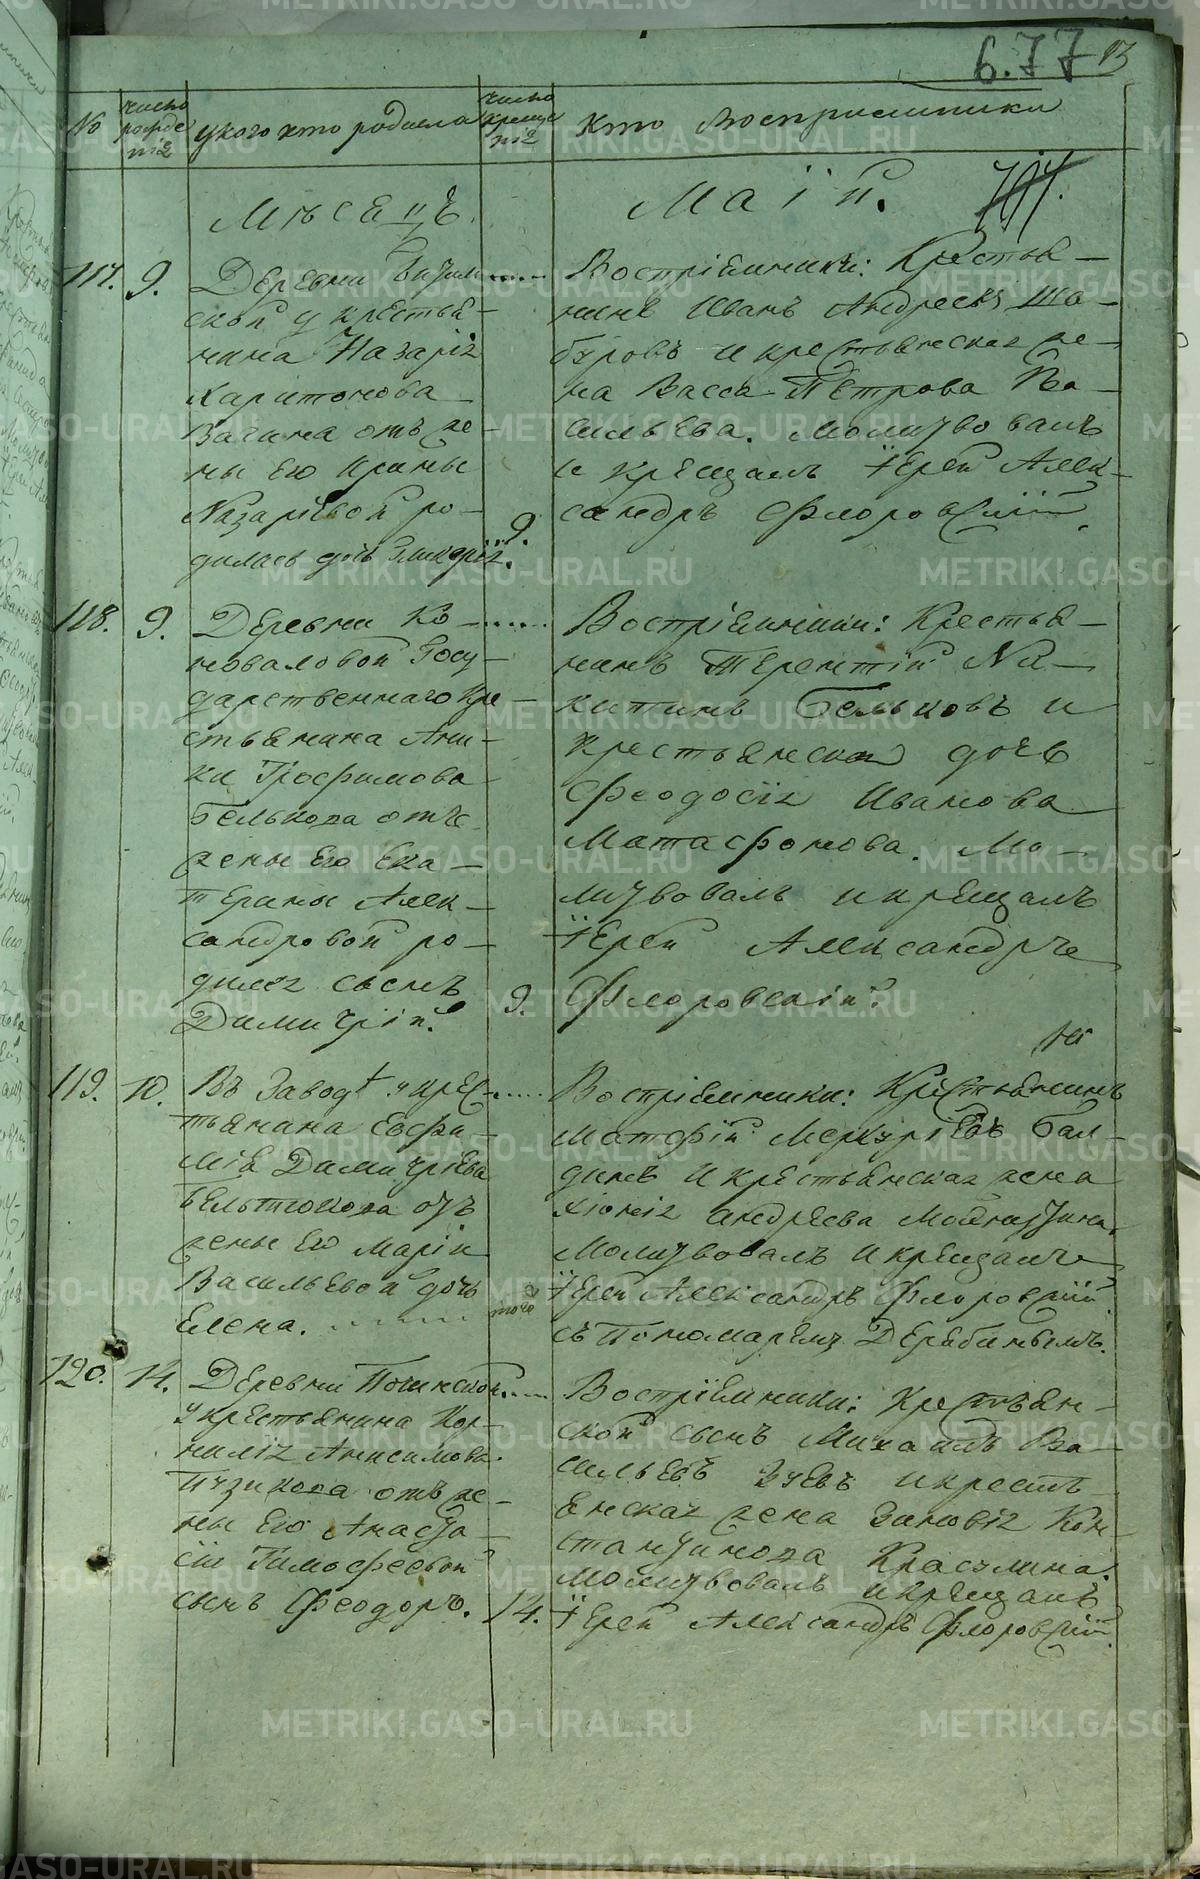 6.77 13
№
число рожденія
у кого кто родился
число крещенія
кто Восприемники
Мѣсецъ
Маій.
117. 9.
Деревни
ской у крестья-
нина Назарія
Харитонова
Вагина отъ же-
ны его Ирины
Назаріевой ро-
дилась дочь Гликерія.
9.
Воспріемники: Крестья-
нинъ Иванъ Андреевъ Ша-
буровъ и крестьянская же-
на Васса Петрова Ва-
сильева. Молитвовалъ
и крещалъ Іерей Алек-
сандръ Флоровскій.
118. 9.
Деревни Ко-
новаловой Госу-
дарственнаго кре-
стьянина Ани-
ки Трофимова
Белькова отъ
жены его Ека-
терины Алек-
сандровой ро-
дился сынъ
Димитрій.
9.
Воспріемники: Крестья-
нинъ Терентій Ни-
китинъ Бельковъ и
крестьянская дочь
Феодосія Иванова
Матафонова. Мо-
литвовалъ и крещалъ
Іерей Александръ
Флоровскій.
119. 10.
Въ Заводѣ у крес-
тьянина Евфи-
мія Димитріева
Бельтюкова отъ
жены его Маріи
Васильевой дочь
Елена.
того
Воспріемники: Крестьянинъ
Матфій Меркуріевъ Бал-
динъ и крестьянская жена
Хіонія Андреева
Молитвовалъ и крещалъ
Іерей Александръ Флоровскій
съ Пономаремъ Дерябинымъ.
120. 14.
Деревни
у крестьянина Кор-
нилія Анисимова
Пузикова отъ же-
ны его Анаста-
сіи Тимофеевой
сынъ Феодоръ.
14.
Воспріемники: Крестьян-
ской сынъ Михаилъ Ва-
сильевъ Зуевъ и кресть-
янская жена Зиновія Кон-
стантинова Красулина.
Молитвовалъ и крещалъ
Іерей Александръ Флоровскій.
METRIKI.GASO-URAL.RU